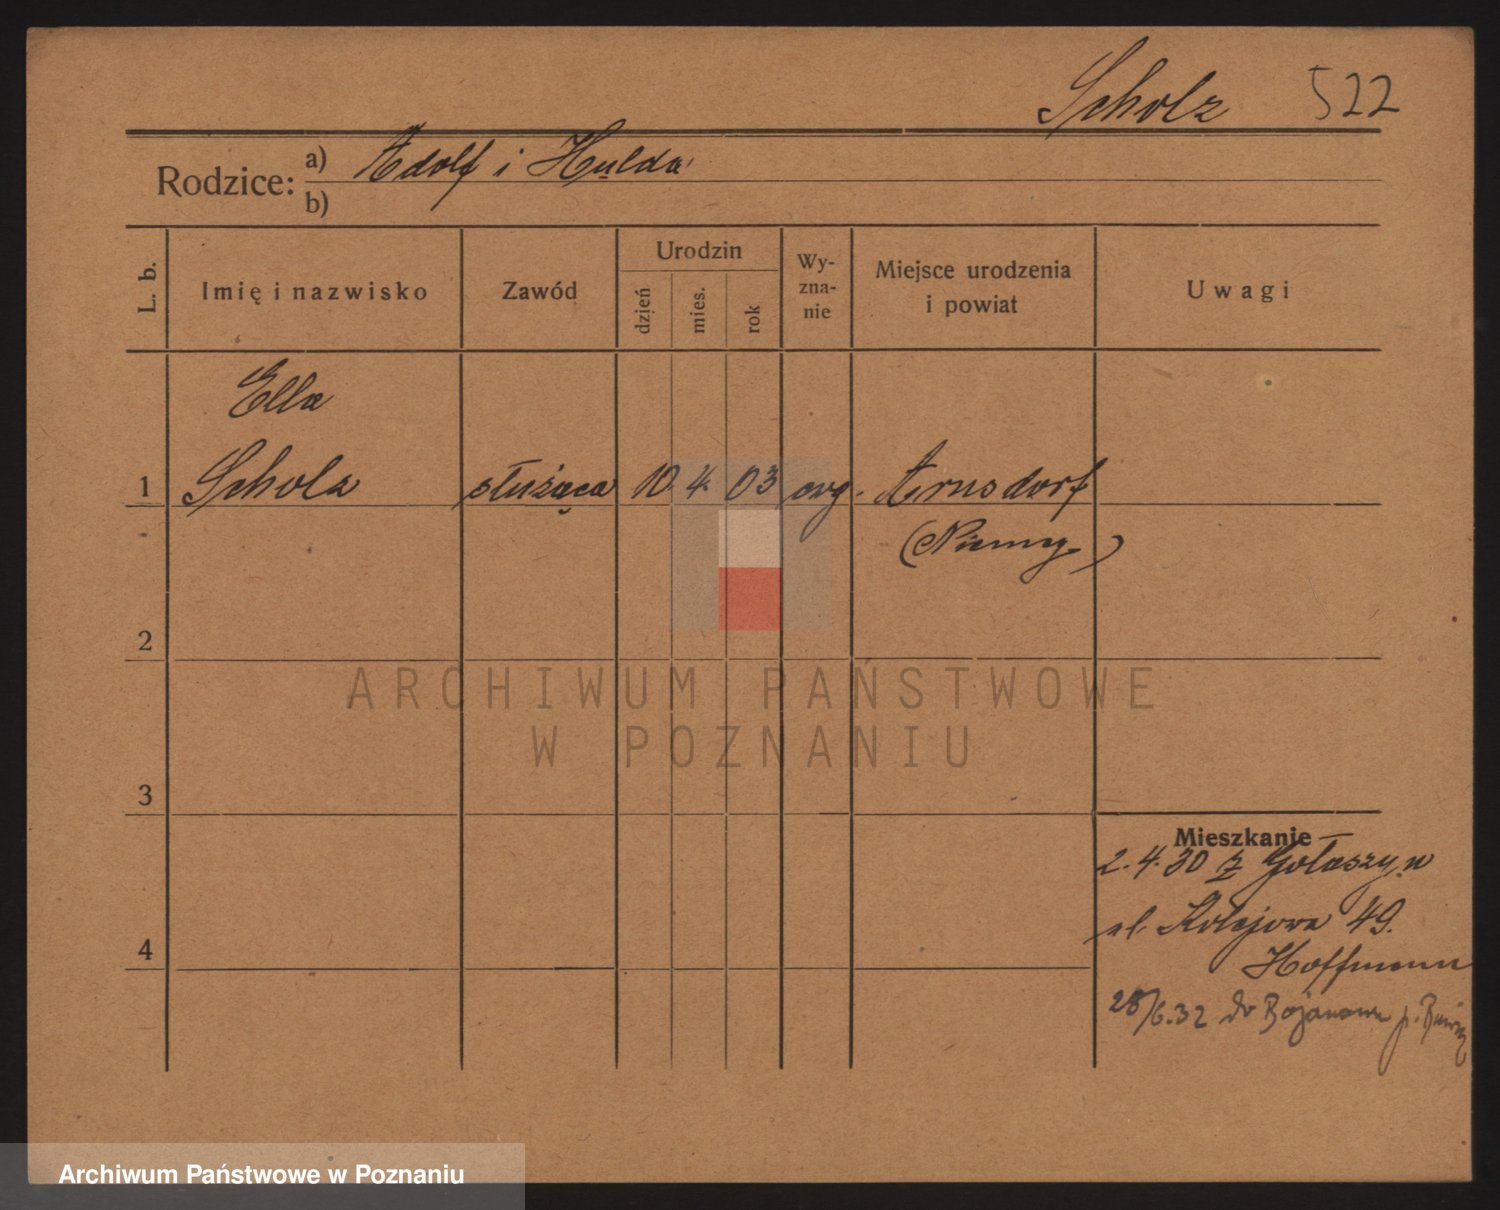 Scholz 522
Rodzice: a) Adolf i Hulda
b)
L. b.
Imię i nazwisko
Zawód
Urodzin
dzień
mies.
rok
Wy-
zna-
nie
Miejsce urodzenia
i powiat
Uwagi
Ella
1 Scholz służąca 10 4. 03 ewg. Arnsdorf
(Niemcy)
2
3
4
Mieszkanie
2.4.30 z Gołaszyn
ul. Kolejowa 49.
Hoffmann
28/6.32 do Bojanowa p.
ARCHIWUM PAŃSTWOWE
W POZNANIU
Archiwum Państwowe w Poznaniu